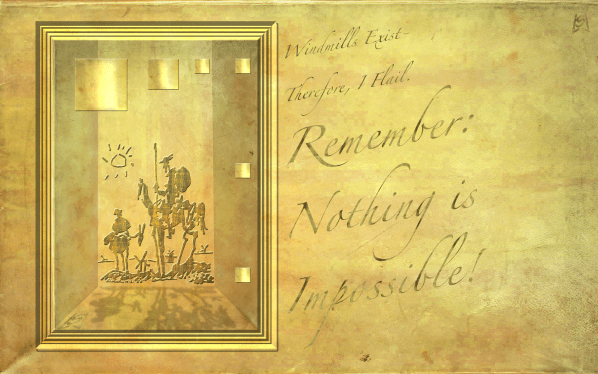 Windmills Exist-
Therefore, I Flail.
Remember:
Nothing is
Impossible!